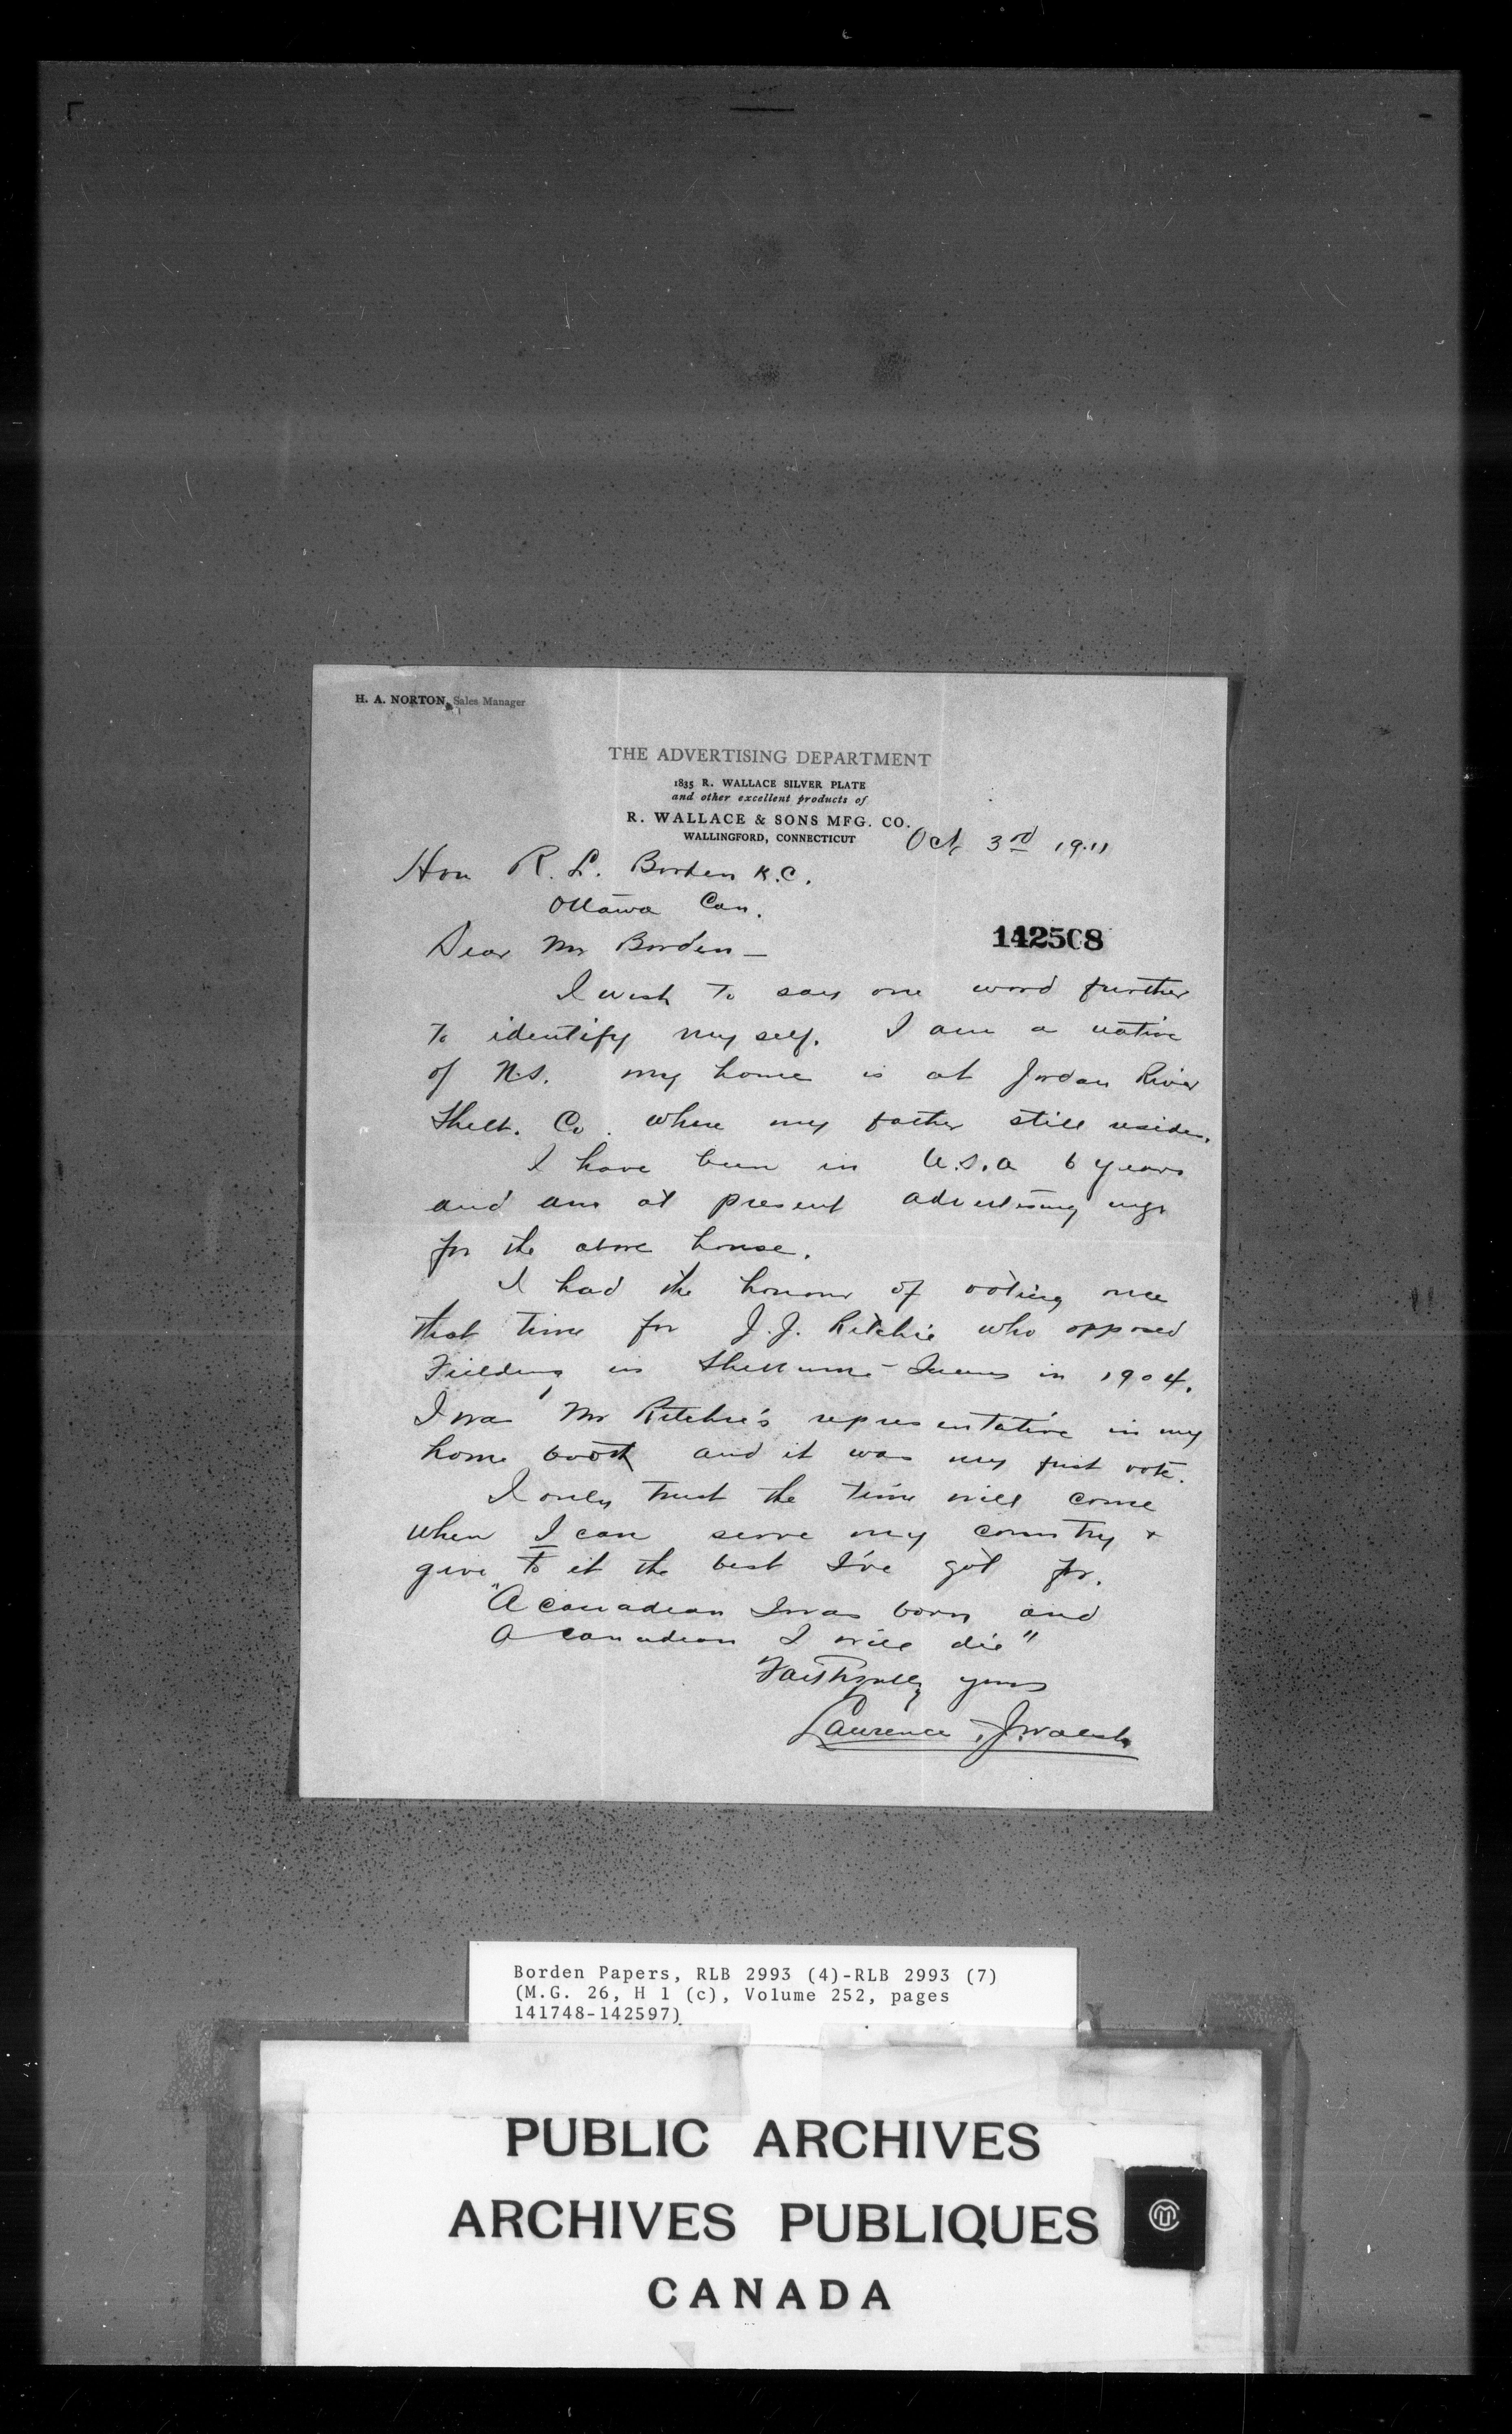 H. A. NORTON, Sales Manager
THE ADVERTISING DEPARTMENT
1835 R. WALLACE SILVER PLATE
and other excellent products of
R. WALLACE & SONS MFG. CO.
WALLINGFORD, CONNECTICUT
Oct, 3rd 1911
Hon R. L. Borden K.C.
Ottawa Can.
142508
Dear Mr Borden —
I wish to say one word further
to identify my self. I am a native
of N.S. my home is at Jordan River
Shelb. Co. where my father still resides.
I have been in U.S.A 6 years
and am at present advertising mgr
for the above house.
I had the honour of voting once
that time for J. J. Ritchie who opposed
Fielding in Shelburne - Queens in 1904.
I was Mr Ritchie's representative in my
home booth and it was my first vote.
I only trust the time will come
when I can serve my country &
give to it the best I've got for.
"A canadian I was born and
a canadian I will die"
Faithfully yours
Laurence J. Walsh
Borden Papers, RLB 2993 (4)-RLB 2993 (7)
(M.G. 26, H 1 (c), Volume 252, pages
141748-142597)
PUBLIC ARCHIVES
ARCHIVES PUBLIQUES
CANADA